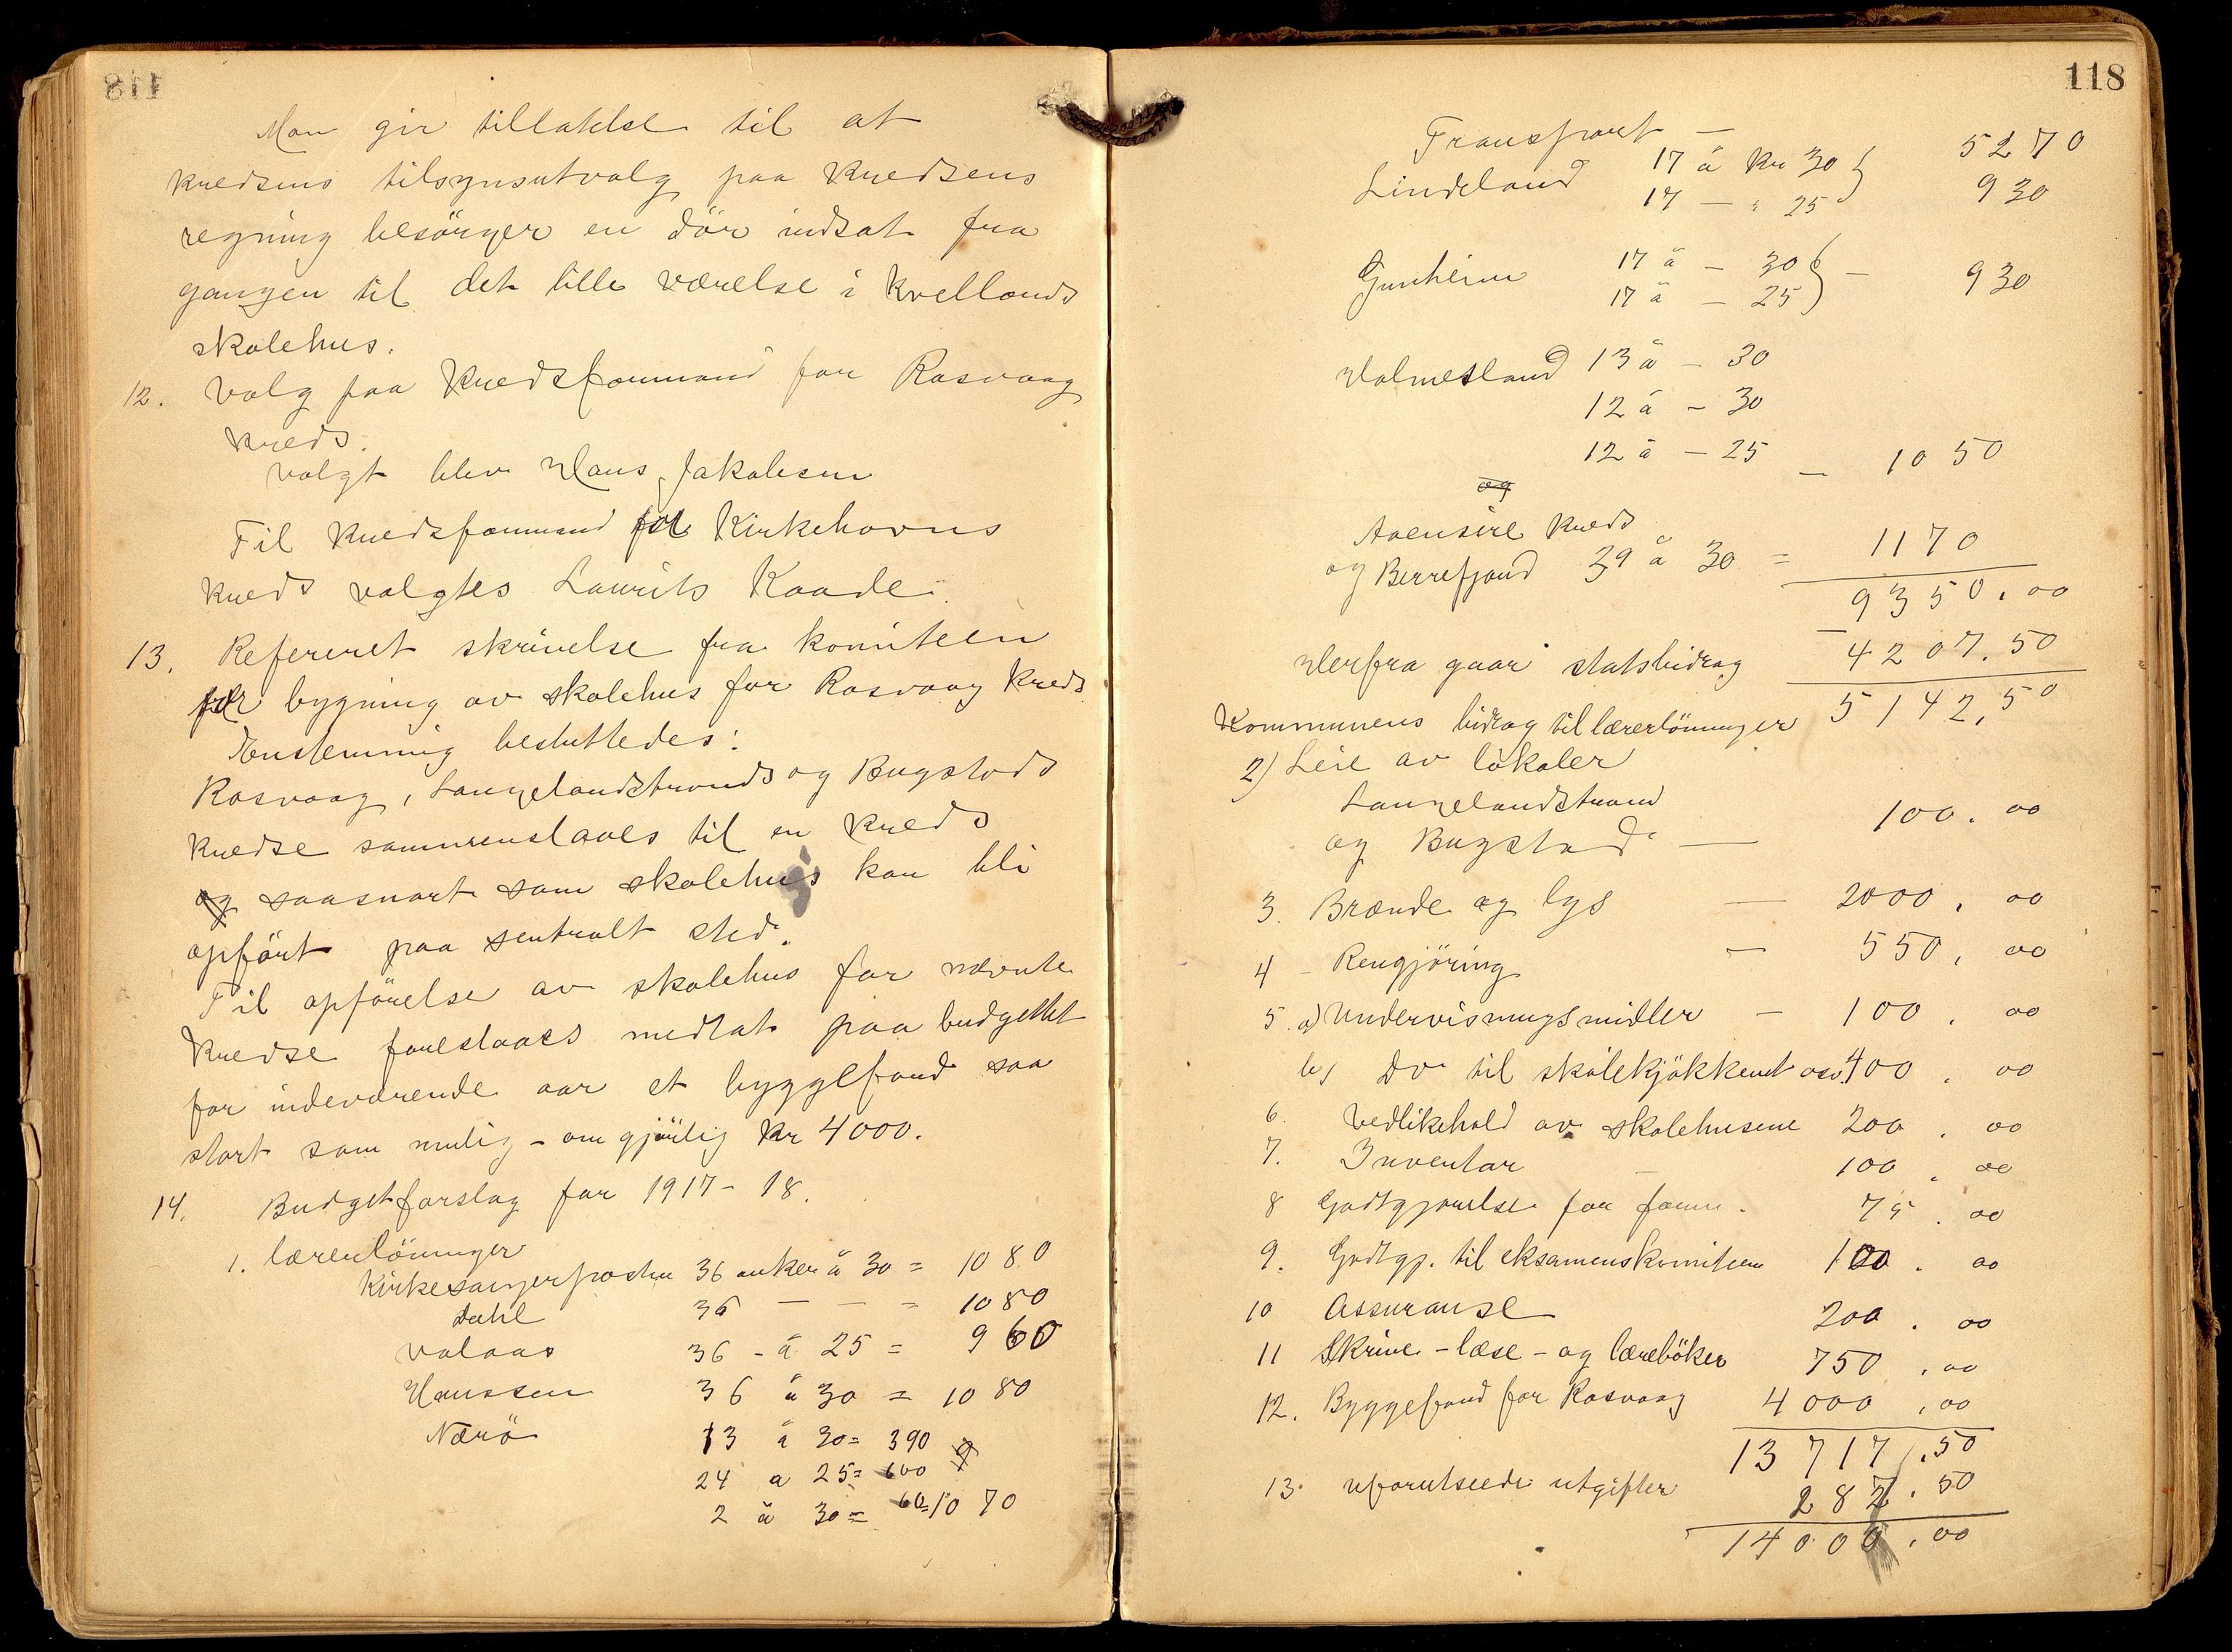 Man gir tillatelse til at
kredsens tilsynsutvalg paa kredsens
regning besörger en dör indsat fra
gangen til det lille værelse i Kvellands
skolehus.
12. Valg paa kredsformand for Rasvaag
kreds.
Valgt blev Hans Jakobsen
Til kredsformand for Kirkehavns
kreds valgtes Laurits Kaade.
13. Refereret skrivelse fra komiteen
for bygning av skolehus for Rasvaag kreds
Enstemmig besluttedes:
Rasvaag, Langelandstrands og Bugstads
kredse sammenslaaes til en kreds
og saasnart som skolehus kan bli
opfört paa sentralt sted.
Til opförelse av skolehus for nævnte
kredse foreslaaes medtat paa budgettet
for indeværende aar et byggefond saa
stort som mulig - om gjörlig kr 4000.
14. Budgetforslag for 1917-18.
1. lærerlönninger
Kirkesangerposten 36 uker á 30 = 1080
Dahl 36 — — = 1080
Valaas 36 - á 25 = 960
Hanssen 36 á 30 = 1080
Nærö 13 á 30 = 390
24 a 25 = 600
2 á 30 = 60 = 1070
118
Transport — 5270
Lindeland 17 á kr 30 } 930
17 — " 25
Gunheim 17 á — 30 } — 930
17 á — 25
Holmesland 13 á — 30
12 á — 30
12 á — 25 — 1050
og
Aaensire kreds
og Berrefjord 39 á 30 = 1170
9350.00
Herfra gaar statsbidrag 4207.50
Kommunens bidrag til lærerlönninger 5142,50
2) Leie av lokaler
Langelandstrand
og Bugstad — 100.00
3. Brænde og lys — 2000,00
4 - Rengjöring — 550,00
5. a) Undervisningsmidler — 100.00
b) Do til skolekjökkenet osv. 400.00
6. Vedlikehold av skolehusene 200.00
7. Inventar — 100.00
8 Godtgjörelse for form. 75.00
9. Godtgj. til eksamenskomiteen 100.00
10 Assuranse 200.00
11 Skrive - læse - og læreböker 750.00
12. Byggefond for Rasvaag 4000,00
13717.50
13. uforutseede utgifter 282.50
14000,00